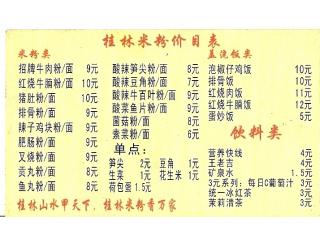 桂林米粉价目表
米粉类
招牌牛肉粉/面 9元
红烧牛腩粉/面 10元
猪肚粉/面 10元
排骨粉/面 9元
辣子鸡块粉/面 9元
肥肠粉/面 9元
叉烧粉/面 9元
贡丸粉/面 8元
鱼丸粉/面 8元
酸辣笋尖粉/面 8元
酸辣豆角粉/面 7元
酸辣牛百叶粉/面 9元
酸菜鱼片粉/面 9元
菌菇粉/面 8元
素菜粉/面 6元
单点:
笋尖 2元 豆角 1元
生菜 1元 花生米 1元
荷包蛋 1.5元
盖浇饭类
泡椒仔鸡饭 10元
排骨饭 10元
红烧肉饭 11元
红烧牛腩饭 12元
蛋炒饭 5元
饮料类
营养快线 4元
王老吉 4元
矿泉水 1.5元
3元系列:每日C葡萄汁 3元
统一冰红茶 3元
茉莉清茶 3元
桂林山水甲天下,桂林米粉香万家